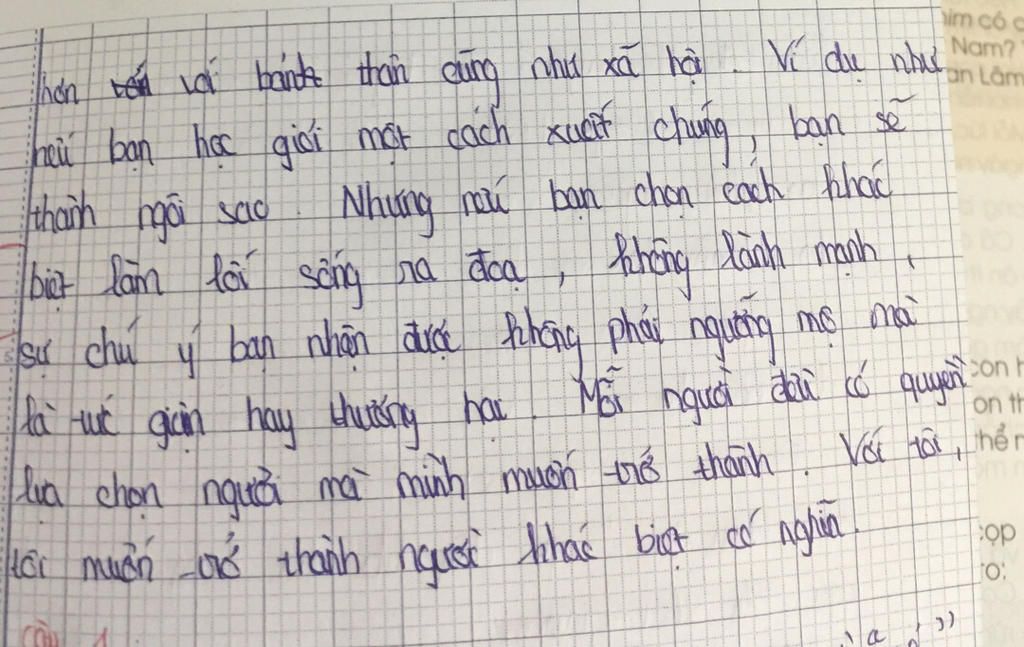 hơn với bản thân cũng như xã hội. Ví dụ như
nếu bạn học giỏi một cách xuất chúng, bạn sẽ
thành ngôi sao. Nhưng nếu bạn chọn cách khác
biệt làm lối sống sa đoạ, không lành mạnh,
sự chú ý bạn nhận được không phải ngưỡng mộ mà
là tức giận hay thương hại. Mỗi người đều có quyền
lựa chọn người mà mình muốn trở thành. Với tôi,
tôi muốn trở thành người khác biệt có nghĩa.
him có
Nam?
ân Lâm
con
on th
thể
cọp
ro: